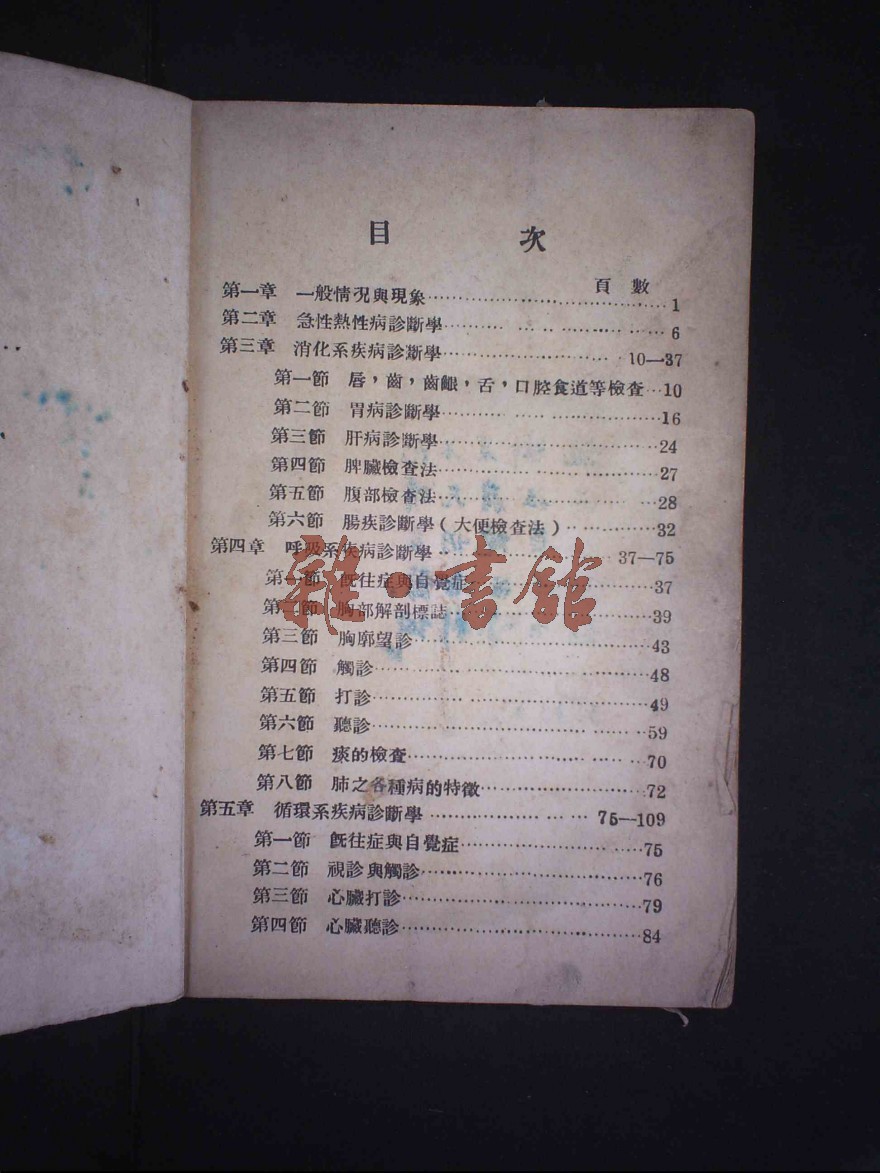 目 次
頁 數
第一章 一般情况與現象………………………………1
第二章 急性熱性病診斷學………………………………6
第三章 消化系疾病診斷學………………………………10—37
第一節 唇，齒，齒齦，舌，口腔食道等檢查…10
第二節 胃病診斷學………………………………16
第三節 肝病診斷學………………………………24
第四節 脾臟檢查法………………………………27
第五節 腹部檢查法………………………………28
第六節 腸疾診斷學（大便檢查法）…………32
第四章 呼吸系疾病診斷學………………………37—75
第一節 旣往症與自覺症………………………37
第二節 胸部解剖標誌…………………………39
第三節 胸廓望診………………………………43
第四節 觸診……………………………………48
第五節 打診……………………………………49
第六節 聽診……………………………………59
第七節 痰的檢查………………………………70
第八節 肺之各種病的特徵……………………72
第五章 循環系疾病診斷學………………………75—109
第一節 旣往症與自覺症………………………75
第二節 視診與觸診……………………………76
第三節 心臟打診………………………………79
第四節 心臟聽診………………………………84
雜·書館